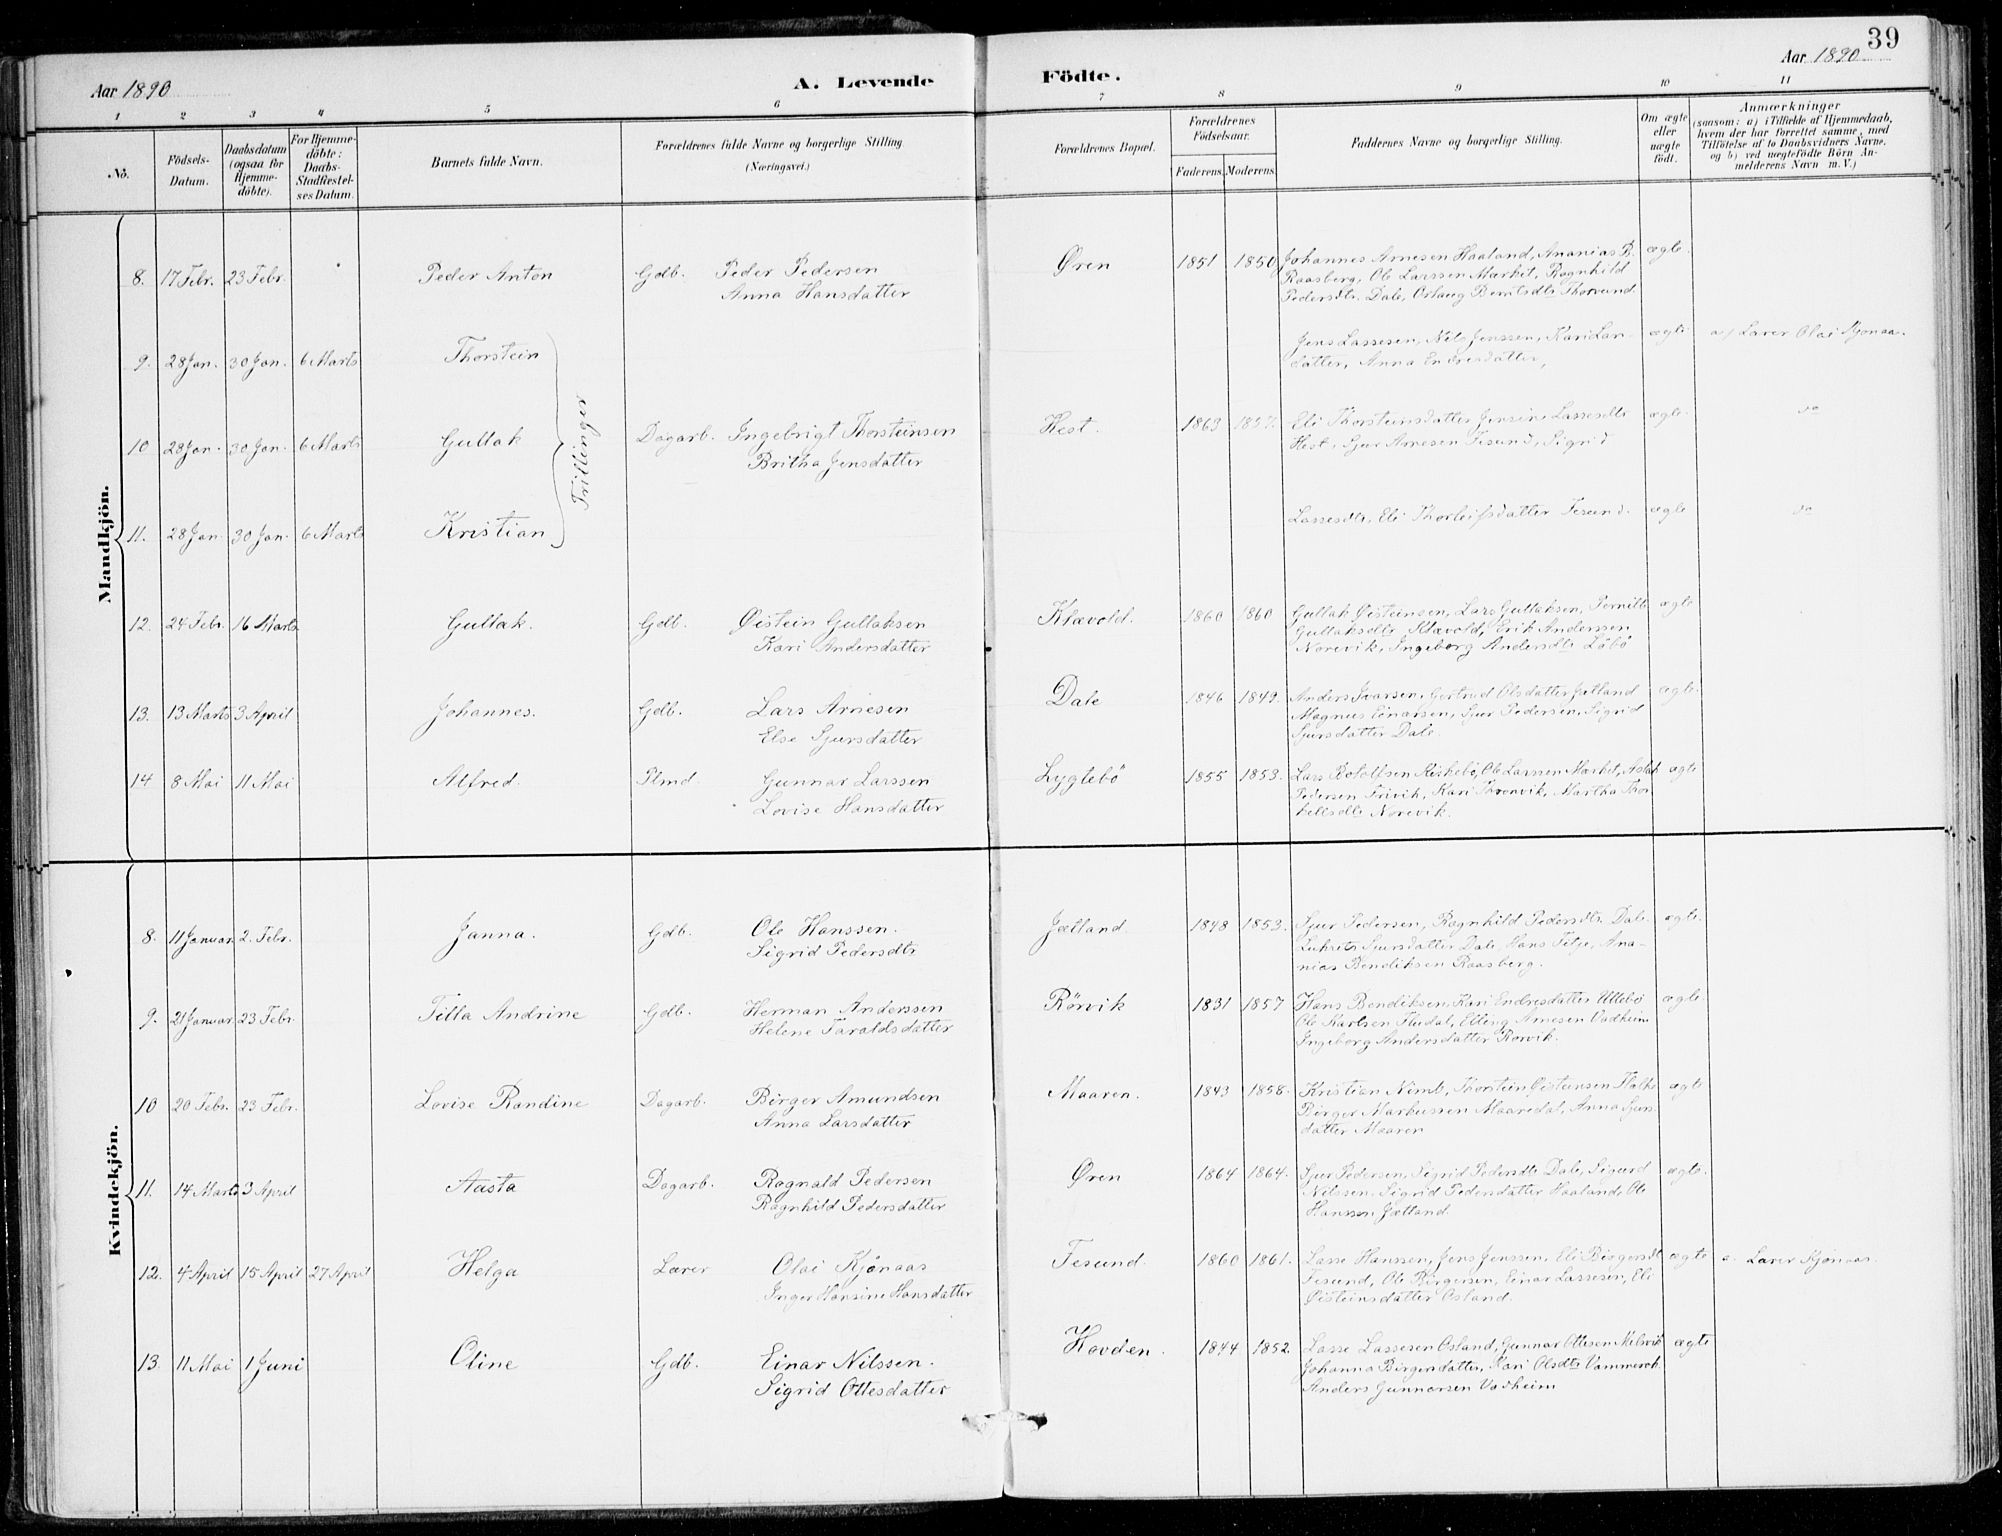 39
Aar 1890
A. Levende
Födte.
Aar 1890
1 2 3 4 5 6 7 8 9 10 11
No.
Födsels-Datum.
Daabsdatum (ogsaa for Hjemme-döbte).
For Hjemme-döbte: Daabs-Stadfæstel-ses Datum.
Barnets fulde Navn.
Forældrenes fulde Navne og borgerlige Stilling
(Næringsvei.)
Forældrenes Bopæl.
Forældrenes Födselsaar.
Faderens. Moderens.
Faddernes Navne og borgerlige Stilling.
Om ægte eller uægte födt.
Anmærkninger
(saasom: a) i Tilfælde af Hjemmedaab,
hvem der har forrettet samme, med
Tilföielse af to Daabsvidners Navne.
og b) ved uægtefödte Börn An-
melderens Navn m.V.)
Mandkjön.
8. 17 Febr. 23 Febr. Peder Anton Gdb. Peder Pedersen Øren 1851 1850 Johannes Arnesen Haaland, Ananias B. ægte
Anna Hansdatter Raasberg, Ole Larssen Mærket, Ragnhild
Pedersdtr. Dale, Oslaug Berntsdtr Thorsund.
9. 28 Jan. 30 Jan. 6 Marts Thorstein Jens Lassesen, Nils Jenssen, Kari Lar- ægte a) Lærer Olai Kjønaas.
datter, Anna Endresdatter,
Trillinger
10 28 Jan. 30 Jan. 6 Marts Gullak Dagarb. Ingebrigt Thorsteinsen Hest. 1863 1857. Eli Thorsteinsdatter Jensine Lassesdtr ægte do
Britha Jensdatter Hest, Sjur Arnesen Tesund, Sigrid
11. 28 Jan 30 Jan. 6 Marts Kristian Lassesdtr, Eli Thorleifsdatter Tesund. ægte do
12. 24 Febr. 16 Marts Gullak. Gdb. Øistein Gullaksen Klævold. 1860 1860 Gullak Øisteinsen, Lars Gullaksen, Pernille ægte
Kari Andersdatter Gullaksdtr Klævold, Erik Anderssen
Norevik, Ingeborg Andersdtr Løbø
13. 13 Marts 3 April Johannes. Gdb. Lars Arnesen Dale 1846 1849. Anders Ivarsen, Gertrud Olsdatter Jætland ægte.
Else Sjursdatter Magnus Einarsen, Sjur Pedersen, Sigrid
Sjursdatter Dale.
14 8 Mai 11 Mai Alfred. Plmd. Gunnar Larssen Lygtebö 1855 1853. Lars Rotolfsen Riskebö, Ole Larssen Mærket, Aslak ægte
Lovise Hansdatter Pedersen Frivik, Kari Thronvik, Martha Thor
kellsdtr Norevik.
Kvindekjön.
8. 11 Januar. 2. Febr. Janna. Gdb. Ole Hanssen. Jætland 1848 1853. Sjur Pedersen, Ragnhild Pedersdtr Dale ægte.
Sigrid Pedersdtr Sjursdatter Dale, Hans Ana-
nias Bendiksen Raasberg.
9. 21 Januar 23 Febr. Tilla Andrine Gdb. Herman Anderssen Rörvik 1831 1857 Hans Bendiksen, Kari Endresdatter Ullebö ægte.
Helene Taraldsdatter Ole Karlsen Flesdal, Elling Arnesen Vadheim
Ingeborg Andersdatter Rörvik.
10 20 Febr. 23 Febr. Lovise Randine Dagarb. Birger Amundsen Maaren. 1843 1858. Kristian Nimb, Thorstein Øisteinsen ægte
Anna Larsdatter Birger Markussen Maaredal, Anna Sjurs
datter Maaren
11. 14 Marts 3 April Aasta Dagarb. Ragnald Pedersen Øren 1864 1864. Sjur Pedersen, Sigrid Pedersdtr Dale, Sigurd ægte.
Ragnhild Pedersdatter Nilssen, Sigrid Pedersdatter Haaland, Ole
Hanssen Jætland
12. 4 April 15 April 27 April Helga Lærer Olai Kjønaas Tesund. 1860 1861. Lasse Hanssen, Jens Jenssen, Eli Birgersdt ægte a. Lærer Kjønaas.
Inger Hansine Hansdatter Tesund, Ole Birgersen, Einar Lassesen, Eli
Øisteinsdatter Osland.
13. 11 Mai 1 Juni Oline Gdb. Einar Nilssen. Hovden. 1844 1852 Lasse Lassesen Osland, Gunnar Ottesen Melsvik ægte
Sigrid Ottesdatter Johanna Birgersdatter, Kari Olsdtr
Anders Gunnarsen Vadheim